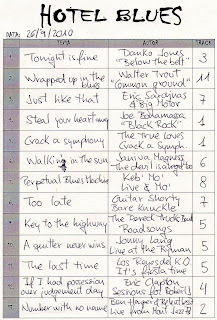 HOTEL BLUES
DATA: 26/9/2010
TEMA AUTOR TRACK
Tonight is fine Danko Jones "Below the belt" 3
Wrapped up in the blues Walter Trout "Common ground" 11
Just like that Eric Sardinas & Big Motor 7
Steal your heart away Joe Bonamassa "Black Rock" 1
Crack a symphony The True Loves Crack a Symph. 1
Walking in the sun Janiva Magness The devil is 
Perpetual Blues Machine Keb' Mo' Live & Mo' 8
Too late Guitar Shorty "Bare Knuckle" 7
Key to the highway The Derek Trucks Band Roadsongs 5
A quitter never wins Jonny Lang Live at the Ryman 5
The last time Los Rawsdel K.O It's fiesta time 5
If I had possession over judgement day Eric Clapton Sessions for Robert J 4
Number with no name Ben Harper & Relentless7 Live from Mont. Jazz 2